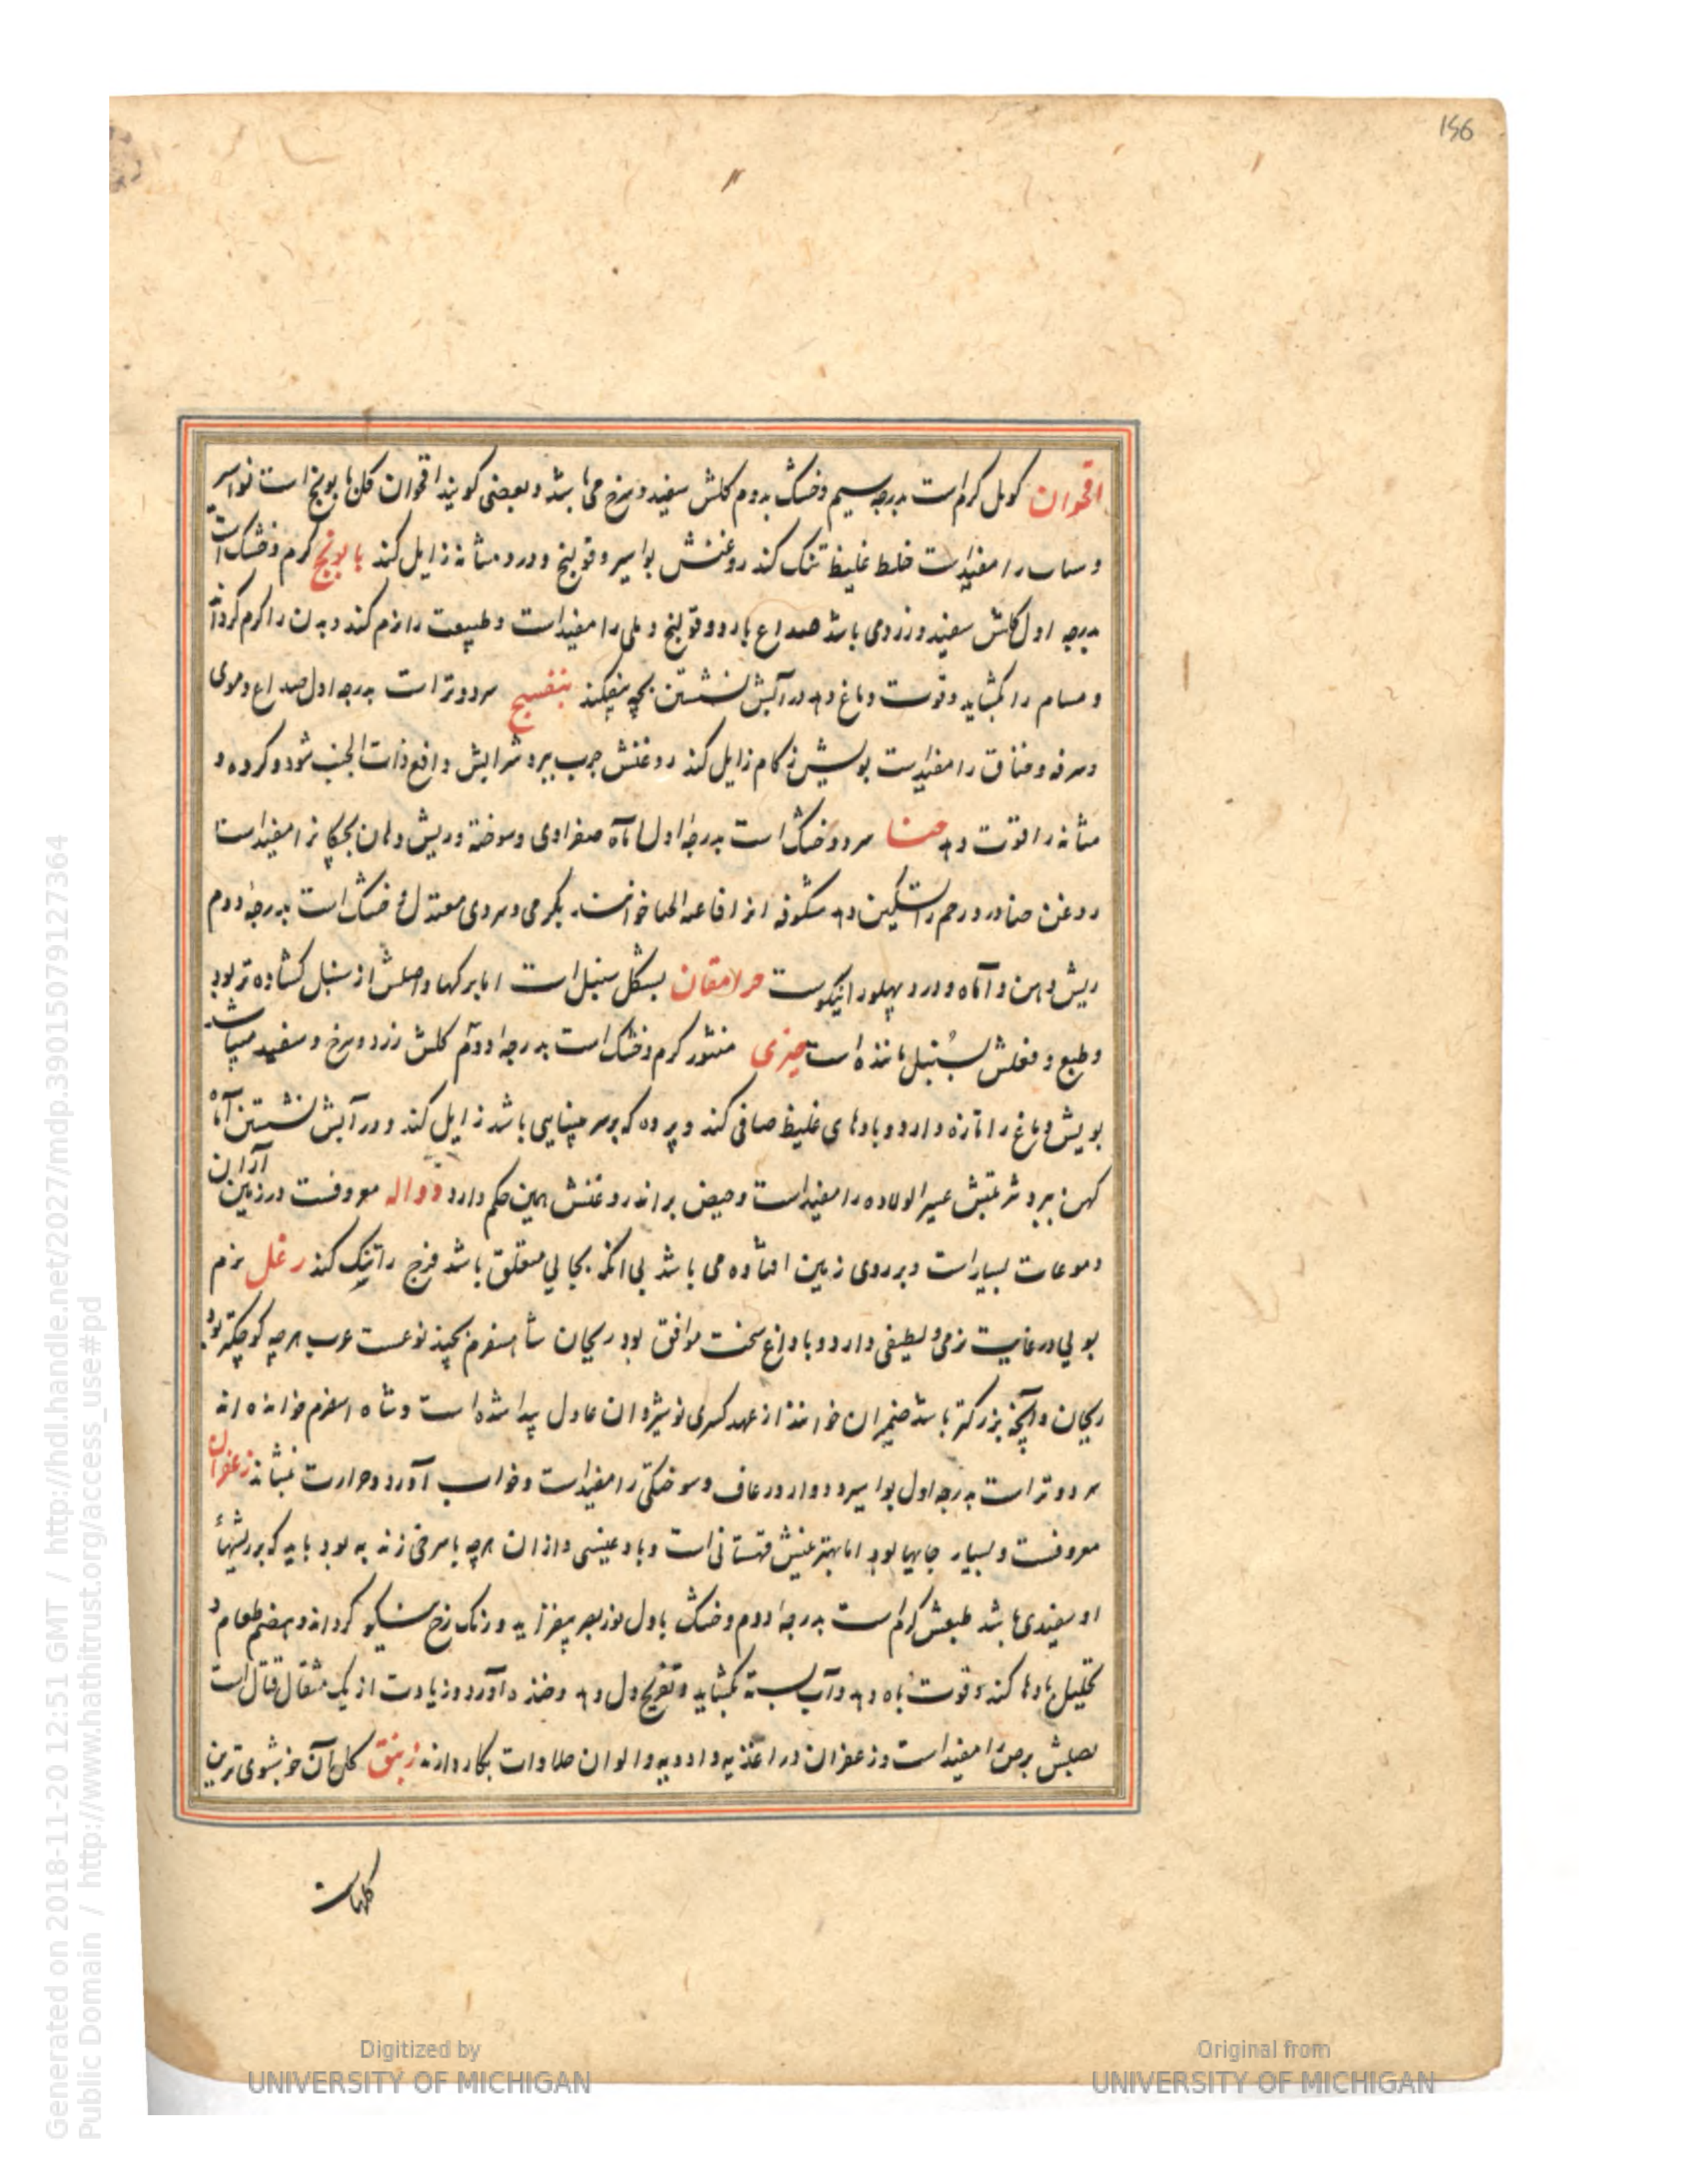 156
اقحوان کوبل کرم است بدرجه سیم وخشک بدوم کلش سفید وسرخ می باشد وبعضی کویند اقحوان کل بابونج است نواسیر
را مفیدست خلط غلیظ تنک کند روغنش بواسیر وقولنج ودرد مثانه زایل کند بابونج کرم وخشک است
بدرجه اول کلش سفید وزرد می باشد صداع بارد وقولنج را مفیداست وطبیعت را نرم کند وبدن را کرم کرداند
ومسام را بکشاید وقوت دماغ دهد در آبش نشستن بچه بیفکند بنفسج سرد وتر است بدرجه اول صداع دموی
وسرفه وخناق را مفیدست بویش زکام زایل کند روغنش جرب ببرد شرابش دافع ذات الجنب شود وکرده و
مثانه را قوت دهد حنا سرد وخشک است بدرجه اول آماه صفراوی وسوخته وریش دهان را مفیداست
روغن حنا درد رحم را تسکین دهد شکوفه خوانند بکرمی وسردی معتدل خشک است بدرجه دوم
ریش دهن وآماه ودرد پهلو را نیکوست بشکل سنبل است اما برکها واصلش از سنبل کشاده تر بود
وطبع وفعلش بسنبل ماننده است خیری منثور کرم وخشک است بدرجه دوم کلش زرد وسرخ وسفید میباشد
بویش دماغ را تازه دارد وبادهای غلیظ صافی کند وپرده که بر سر بینایی باشد زایل کند ودر آبش نشستن آماه
کهن ببرد شربتش عسیر الولاده را مفیداست وحیض براند روغنش همین حکم دارد دواله معروفست در زمین اران
وموغات بسیار است وبر روی زمین افتاده می باشد بی انکه بجایی متعلق باشد فرج را تنک کند رغل نرم
بویی در غایت نرمی ولطیفی دارد وبا دماغ سخت موافق بود ریحان شاهسفرم بچند نوعست عرب هرچه کوچکتر بود
ریحان وآنچه بزرکتر باشد ضیمران خوانند از عهد کسری نوشیروان عادل پیدا شده است وشاه اسفرم خوانده اند
سرد وتر است بدرجه اول بواسیر ودوار ورعاف وسوختکی را مفیداست وخواب آورد وحرارت بنشاند زعفران
معروفست وبسیار جایها بود اما بهترینش قهستانی است وبادغیسی وازان هرچه با سرخی زند به بود باید که بر ریشهاء
او سفیدی باشد طبعش کرم است بدرجه دوم وخشک باول نور بصر بیفزاید ورنک رخ نیکو کرداند وهضم طعام و
تحلیل بادها کند وقوت باه دهد وآب بسته بکشاید وتفریح دل دهد وخنده آورد وزیادت از یک مثقال قتال است
بصلش برص را مفیداست وزعفران در اغذیه وادویه والوان حلاوات بکار دارند زنبق کل آن خوشبوی ترین
کلهاست
Digitized by
UNIVERSITY OF MICHIGAN
Original from
UNIVERSITY OF MICHIGAN
Generated on 2018-11-20 12:51 GMT / http://hdl.handle.net/2027/mdp.39015079127364
Public Domain / http://www.hathitrust.org/access_use#pd